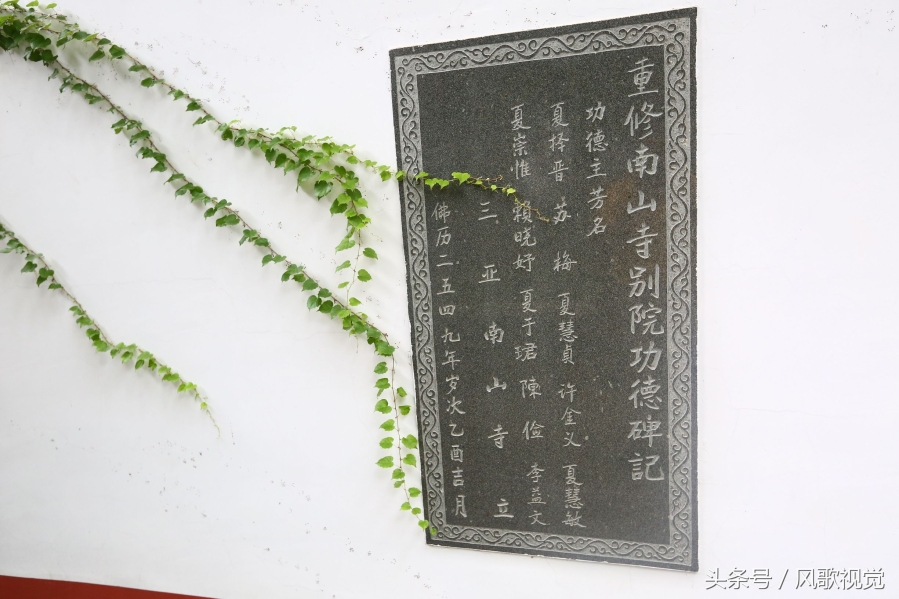 重修南山寺别院功德碑記
功德主芳名
夏择晋 苏梅 夏慧貞 许金义 夏慧敏
夏崇惟 賴晓妤 夏于珺 陳俭 李益文
三亚南山寺立
佛历二五四九年岁次乙酉吉月
头条号 / 风歌视觉